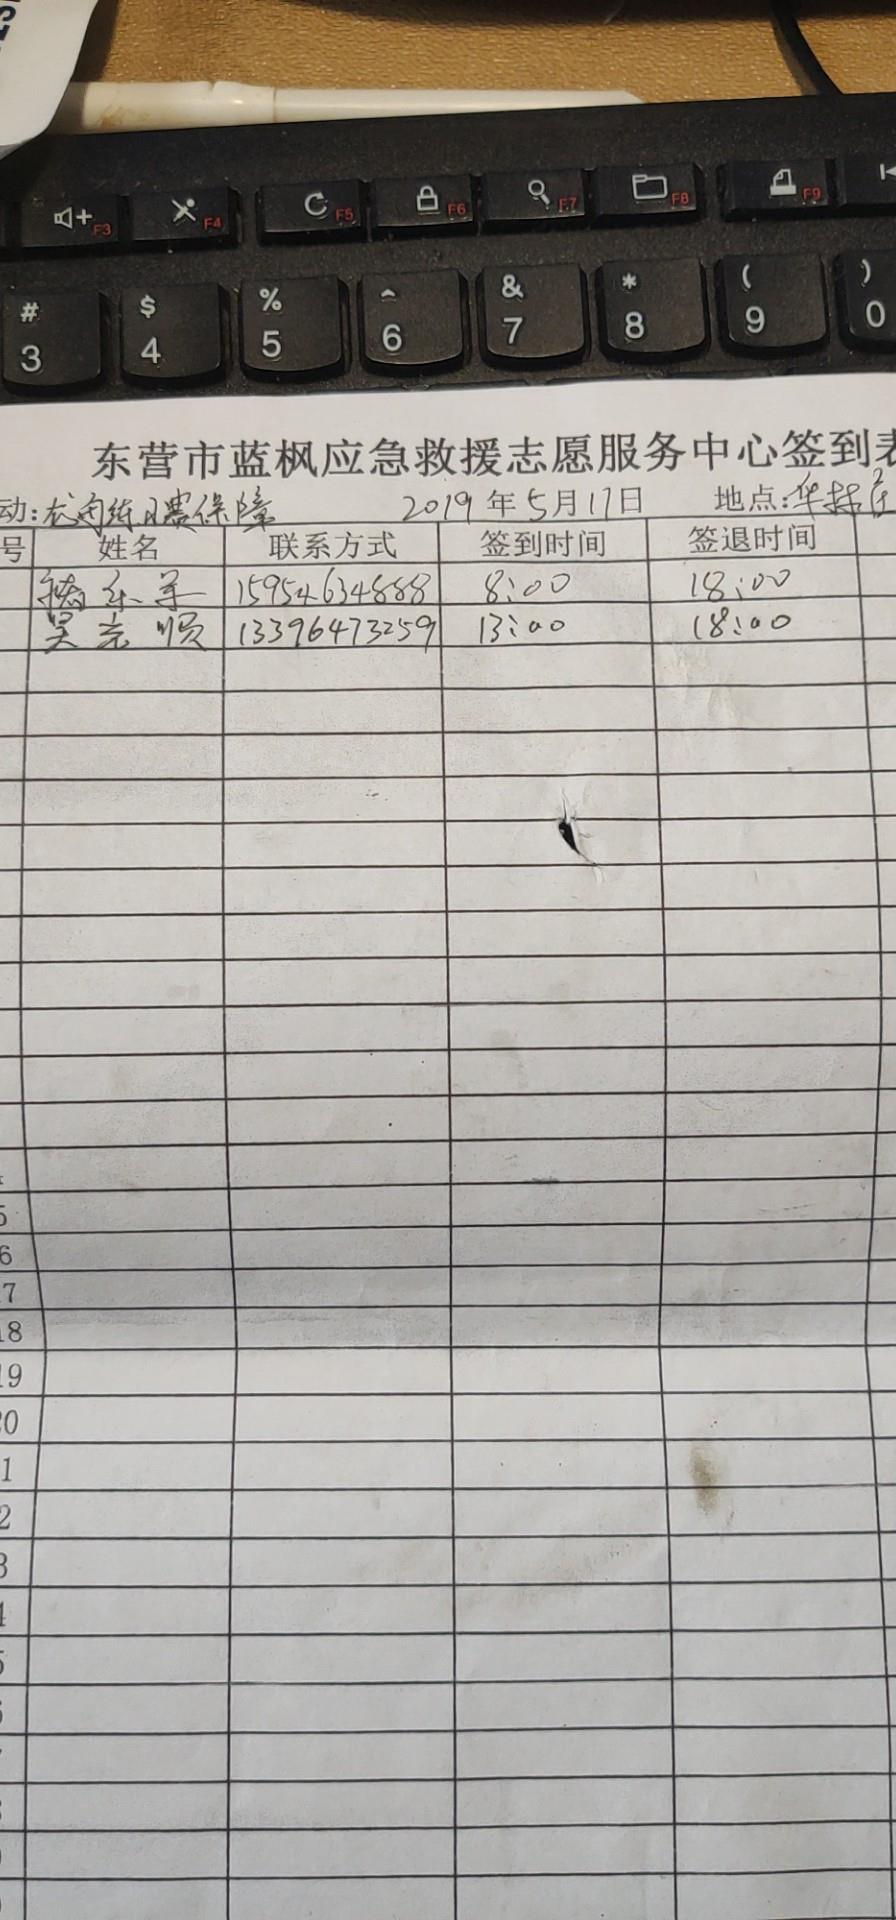 F3 F4 F5 F6 F7 F8 F9
# $ % ^ & * ( )
3 4 5 6 7 8 9 0
东营市蓝枫应急救援志愿服务中心签到表
动: 保障 2019年5月17日 地点:华
号 姓名 联系方式 签到时间 签退时间
15954634888 8:00 18:00
吴 顺 13396473259 13:00 18:00
5
6
17
18
19
20
1
2
3
4
5